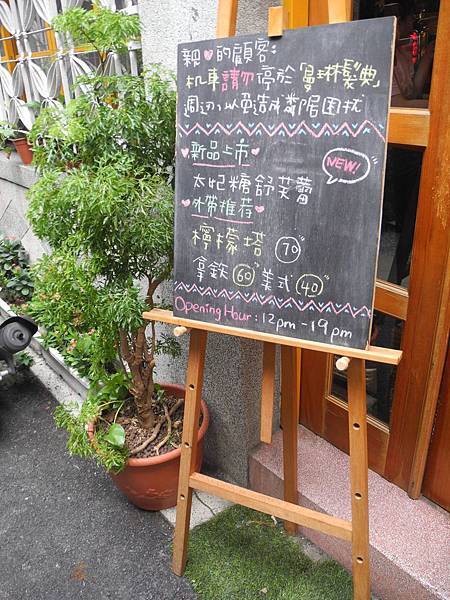 親♥的顧客:
机車請勿停於「曼琳髮典」
週边,以免造成鄰居困扰
新品上市♥
NEW!
太妃糖舒芙蕾
♥外帶推荐♥
檸檬塔 70
拿鉄 60 美式 40
Opening Hour: 12pm-19pm